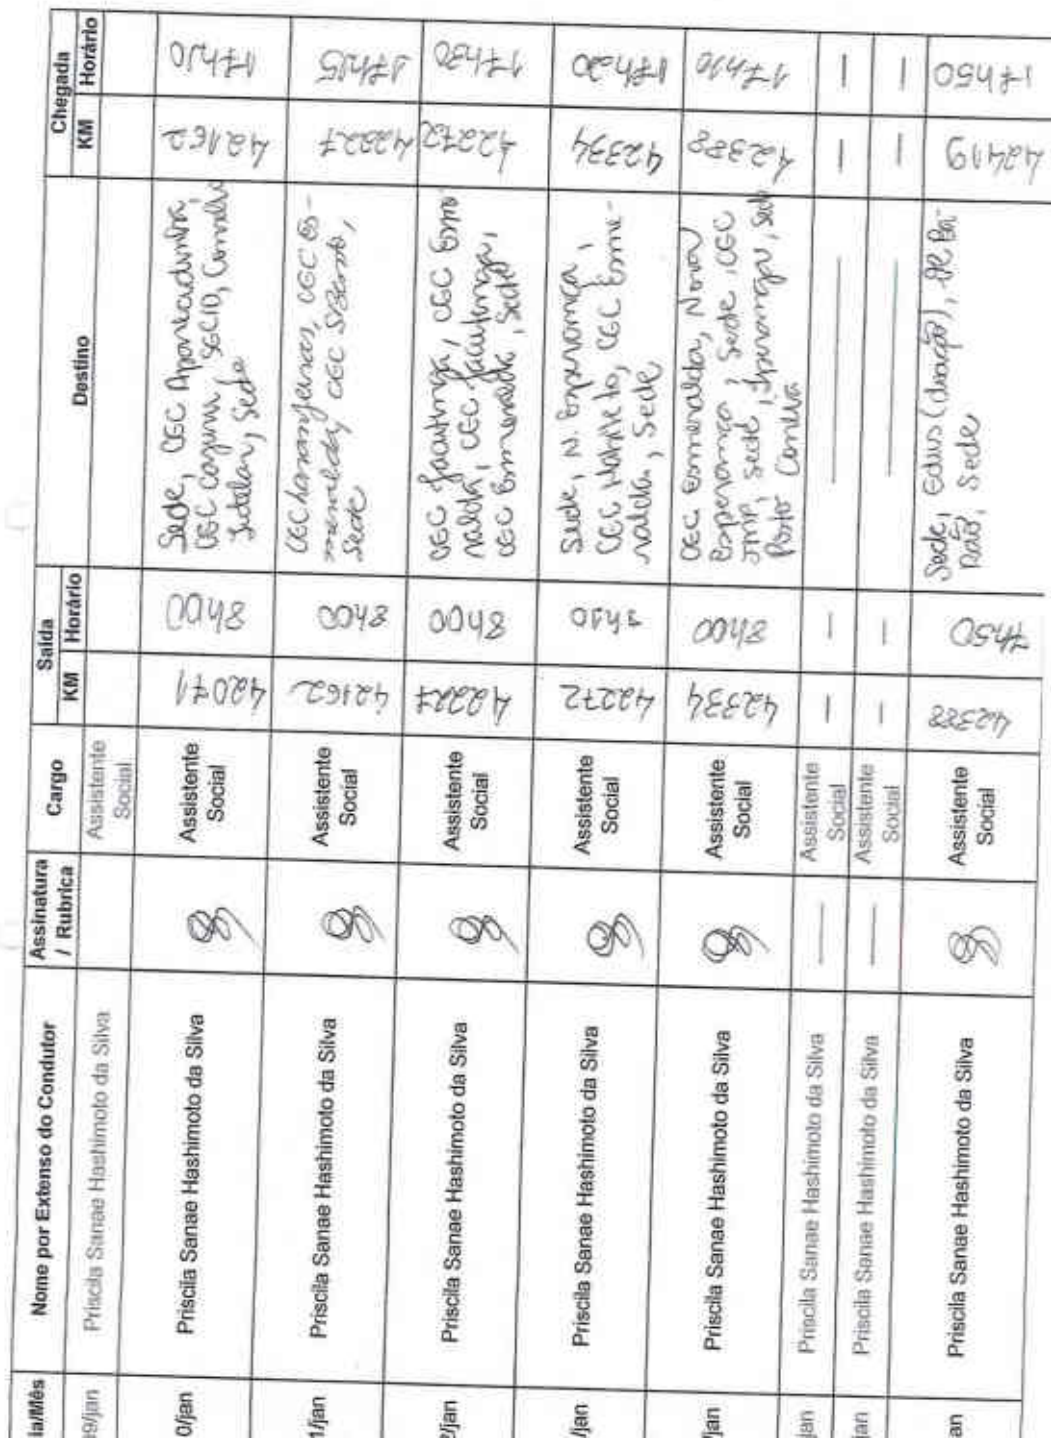 ia/Mês Nome por Extenso do Condutor Assinatura / Rubrica Cargo Saída Destino Chegada
KM Horário KM Horário
9/jan Priscila Sanae Hashimoto da Silva Assistente Social
0/jan Priscila Sanae Hashimoto da Silva Assistente Social 42071 8h00 Sede, CGC
CGC SGCID,
Sede 42162 17h10
1/jan Priscila Sanae Hashimoto da Silva Assistente Social 42162 8h00 CGC Laranjeiras, CGC Es-
meralda, CGC S/Bento,
Sede 42227 17h15
2/jan Priscila Sanae Hashimoto da Silva Assistente Social 42227 8h00 CGC Jacutinga, CGC Esme
ralda, CGC Jacutinga,
CGC Esmeralda, Sede 42272 17h30
/jan Priscila Sanae Hashimoto da Silva Assistente Social 42272 Sede, N. Esperança,
CGC CGC Esme-
ralda, Sede 42334 17h20
/jan Priscila Sanae Hashimoto da Silva Assistente Social 42334 8h00 CGC Esmeralda, Nova
Esperança, Sede, CGC
Sede, Ipiranga, Sede
Posto 42388 17h10
jan Priscila Sanae Hashimoto da Silva — Assistente Social — — — — —
jan Priscila Sanae Hashimoto da Silva — Assistente Social — — — — —
an Priscila Sanae Hashimoto da Silva Assistente Social 42388 7h50 Sede, Edus
Sede 42419 17h50